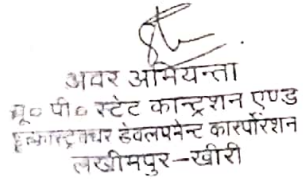 अवर अभियन्ता
यू० पी० स्टेट कान्ट्रशन एण्ड
इन्फ्रास्ट्रक्चर डेवलपमेन्ट कारपोरेशन
लखीमपुर-खीरी